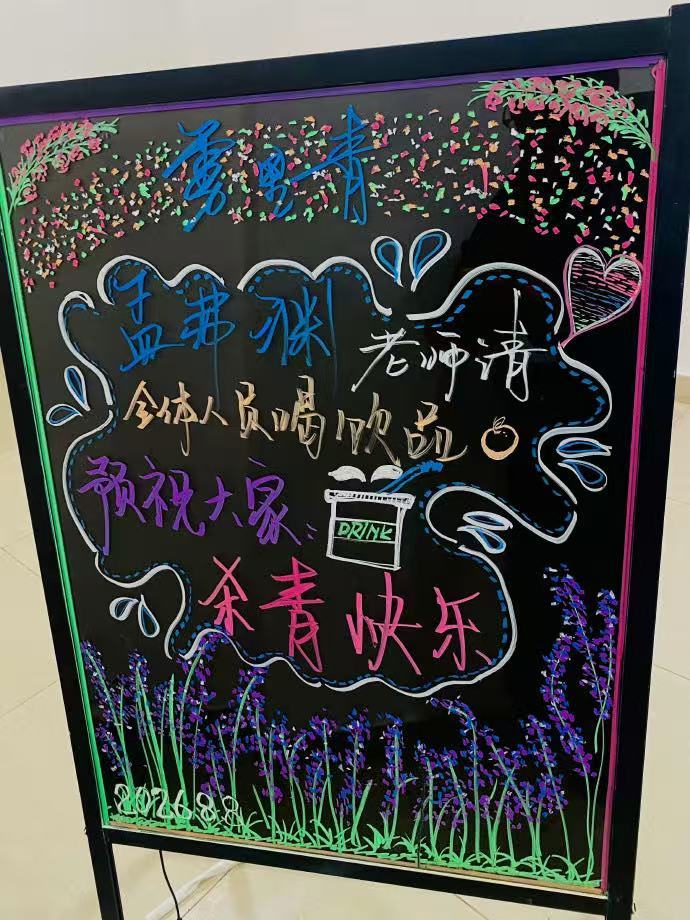 雾里青
孟弗渊 老师请
全体人员喝饮品
预祝大家:
DRINK
杀青快乐
202688